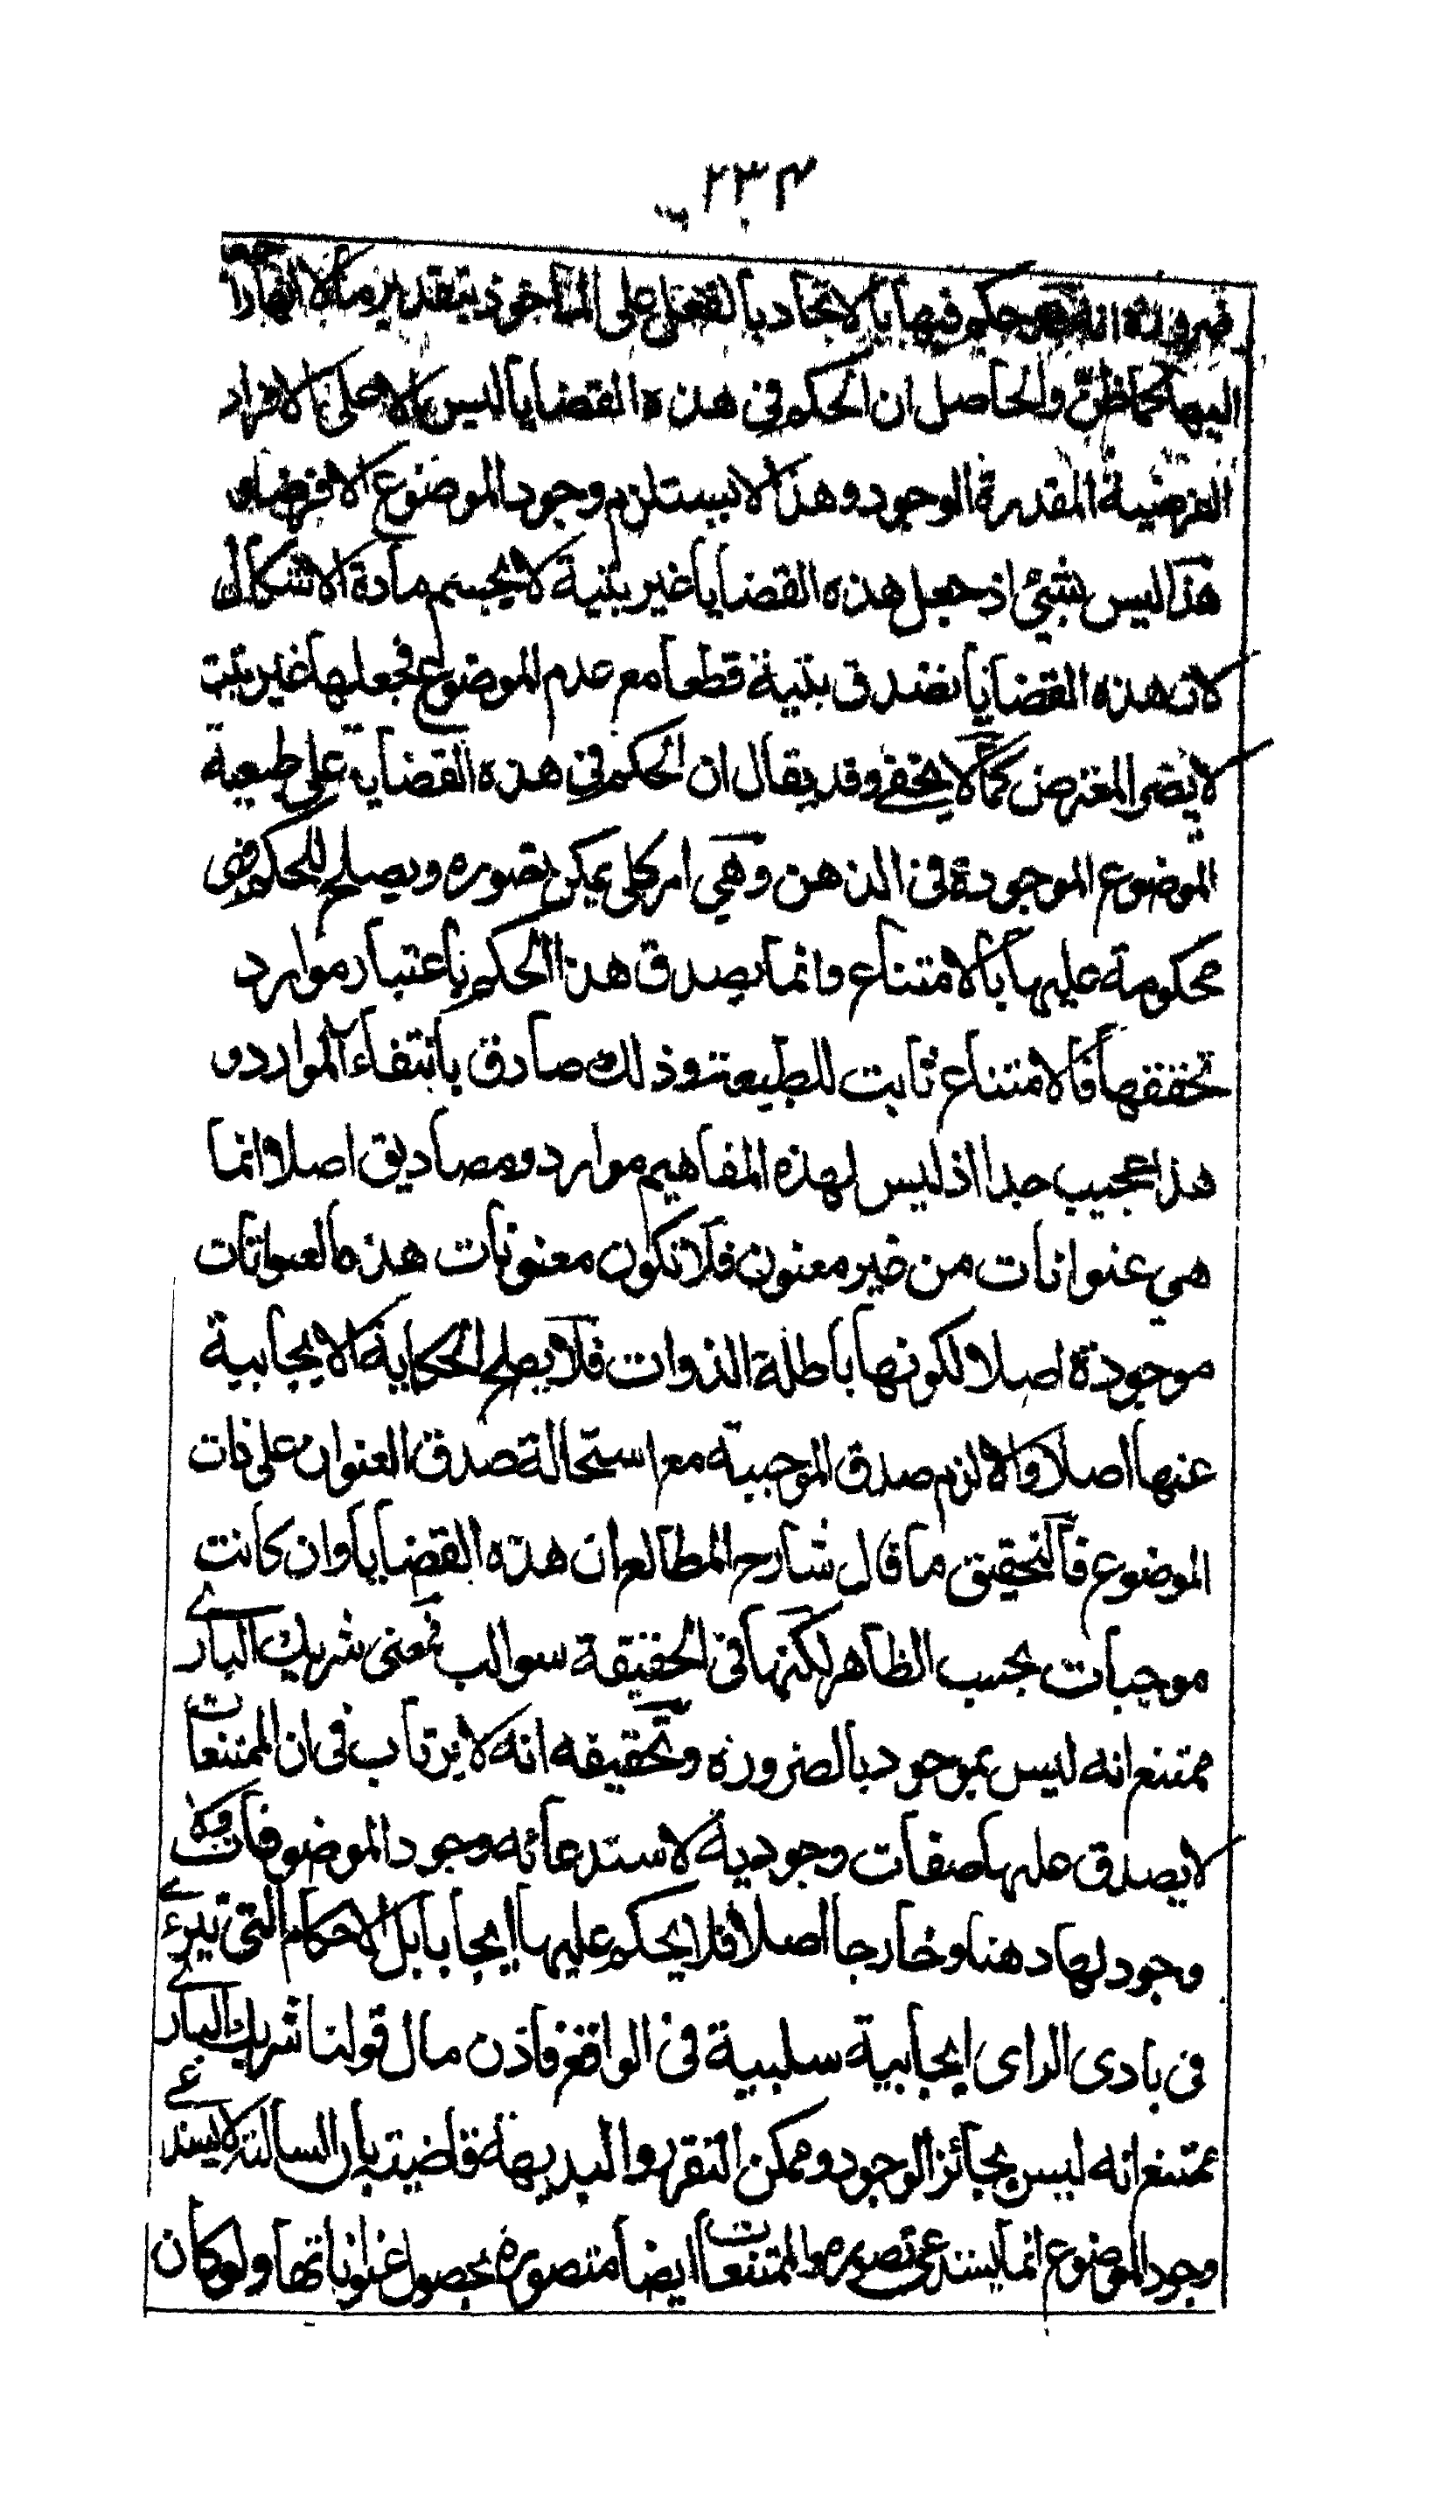 ٢٣٤
ضرورة انه حكم فيها بالاتحاد بالفعل على الماخوذ بتقدير ما لا انها راجعة
اليها كما ظن والحاصل ان الحكم في هذه القضايا ليس الا على الافراد
الفرضية المقدرة الوجود وهذا لا يستلزم وجود الموضوع الا فرضا و
هذا ليس بشيئ اذ جعل هذه القضايا غير بتية لا يحسم مادة الاشكال
لان هذه القضايا تصدق بتية قطعا مع عدم الموضوع فجعلها غير بتية
لا يضر المعترض كما لا يخفى وقد يقال ان الحكم في هذه القضايا على طبيعة
الموضوع الموجودة في الذهن وهي امر كلي يمكن تصوره ويصلح للحكم فهي
محكومة عليها بالامتناع وانما يصدق هذا الحكم باعتبار موارد
تحققها فالامتناع ثابت للطبيعة وذلك صادق بانتفاء الموارد و
هذا عجيب جدا اذ ليس لهذه المفاهيم موارد ومصاديق اصلا انما
هي عنوانات من غير معنون فلا تكون معنونات هذه العنوانات
موجودة اصلا لكونها باطلة الذوات فلا يصلح الحكاية الايجابية
عنها اصلا والا لزم صدق الموجبة مع استحالة صدق العنوان على ذات
الموضوع فالتحقيق ما قال شارح المطالع ان هذه القضايا وان كانت
موجبات بحسب الظاهر لكنها في الحقيقة سوالب فمعنى شريك الباري
ممتنع انه ليس بموجود بالضرورة وتحقيقه انه لا يرتاب في ان الممتنعات
لا يصدق عليها صفات وجودية لاستدعائه وجود الموضوفات ولا
وجود لها ذهنا وخارجا اصلا فلا يحكم عليها ايجابا بل الاحكام التي تترى
في بادى الراى ايجابية سلبية في الواقع فاذن مال قولنا شريك الباري
ممتنع انه ليس بجائز الوجود وممكن التقرر والبديهة قاضية بان السالبة لا يستدعي
وجود الموضوع انما يستدعي تصوره والممتنعات ايضا متصورة بحصول عنوناتها ولو كان